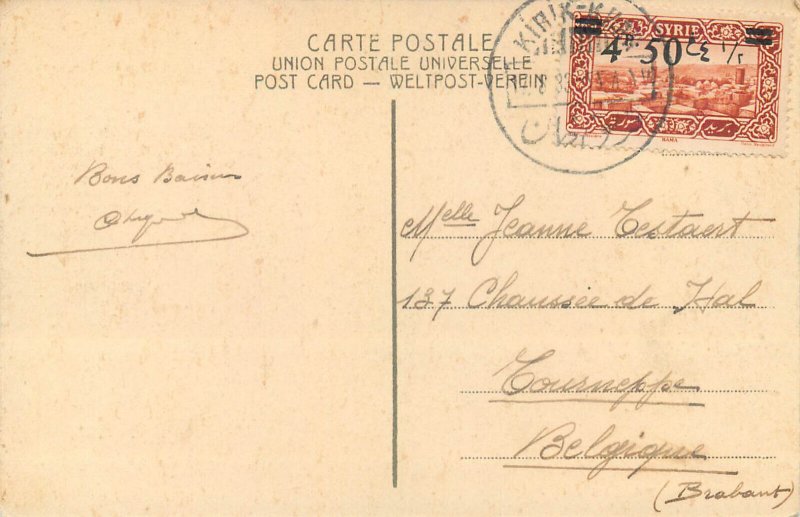 CARTE POSTALE
UNION POSTALE UNIVERSELLE
POST CARD — WELTPOST-VEREIN
KIRIK-KHAN
SYRIE
4P. 50 ٤ ١/٢
HAMA
Bons Baisers
Melle Jeanne Testaert
137 Chaussée de Hal
Tourneppe
Belgique
(Brabant)